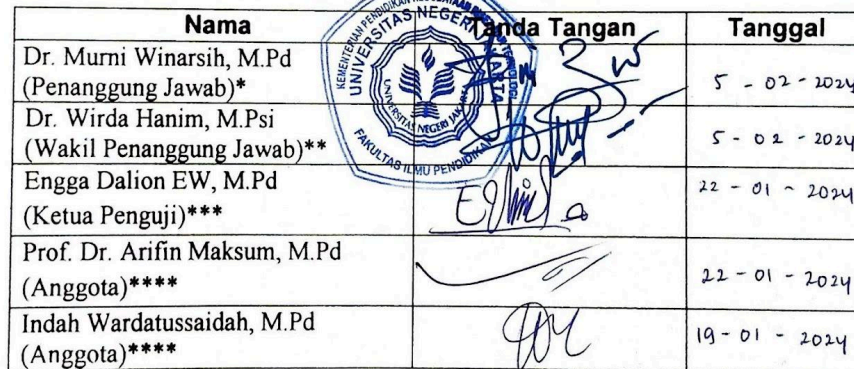 Nama Tanda Tangan Tanggal
Dr. Murni Winarsih, M.Pd
(Penanggung Jawab)* 5 - 02 - 2024
Dr. Wirda Hanim, M.Psi
(Wakil Penanggung Jawab)** 5 - 02 - 2024
Engga Dalion EW, M.Pd
(Ketua Penguji)*** 22 - 01 - 2024
Prof. Dr. Arifin Maksum, M.Pd
(Anggota)**** 22 - 01 - 2024
Indah Wardatussaidah, M.Pd
(Anggota)**** 19 - 01 - 2024
KEMENTERIAN PENDIDIKAN
UNIVERSITAS NEGERI JAKARTA
UNIVERSITAS NEGERI JAKARTA
FAKULTAS ILMU PENDIDIKAN